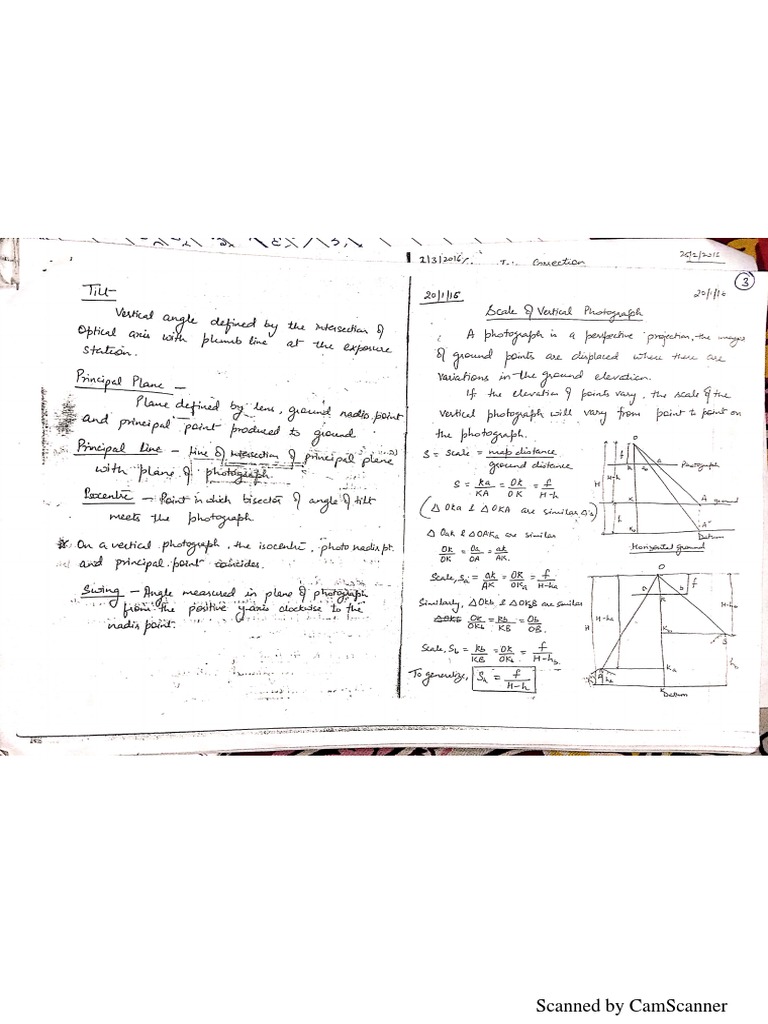 Tilt
Vertical angle defined by the intersection of
Optical axis with plumb line at the exposure
station.
Principal Plane –
Plane defined by lens, ground nadir point
and principal point produced to ground.
Principal line – line of intersection of principal plane
with plane of photograph
Isocentre – Point in which bisector of angle of tilt
meets the photograph
* On a vertical photograph, the isocentre, photo nadir pt.
and principal point coincides.
Swing – Angle measured in plane of photograph
from the positive y-axis clockwise to the
nadir point.
2/3/2016
Correction
25/2/2016
3
20/1/16
20/1/16
Scale of Vertical Photograph
A photograph is a perspective projection, the images
of ground points are displaced where there are
variations in the ground elevation.
If the elevation of points vary, the scale of the
vertical photograph will vary from point to point on
the photograph.
S = scale = map distance / ground distance
S = ka/KA = Ok/OK = f/H-h
(Δ Oka & Δ OKA are similar Δ's)
Δ Oak & Δ OAKa are similar
Ok/OK = Oa/OA = ak/AK
Scale, Sa = ak/AK = OK/OKa = f/H-ha
Similarly, Δ Okb & Δ OKB are similar
Ok/OKb = kb/KB = Ob/OB
Scale, Sb = kb/KB = Ok/OKb = f/H-hb
To generalize, Sh = f/H-h
O
f
k
a
Photograph
H
H-h
K
A
ground
h
A'
Datum
Horizontal Ground
O
a
b
f
k
H
H-ha
H-hb
Kb
B
hb
A
Ka
ha
K
Datum
Scanned by CamScanner